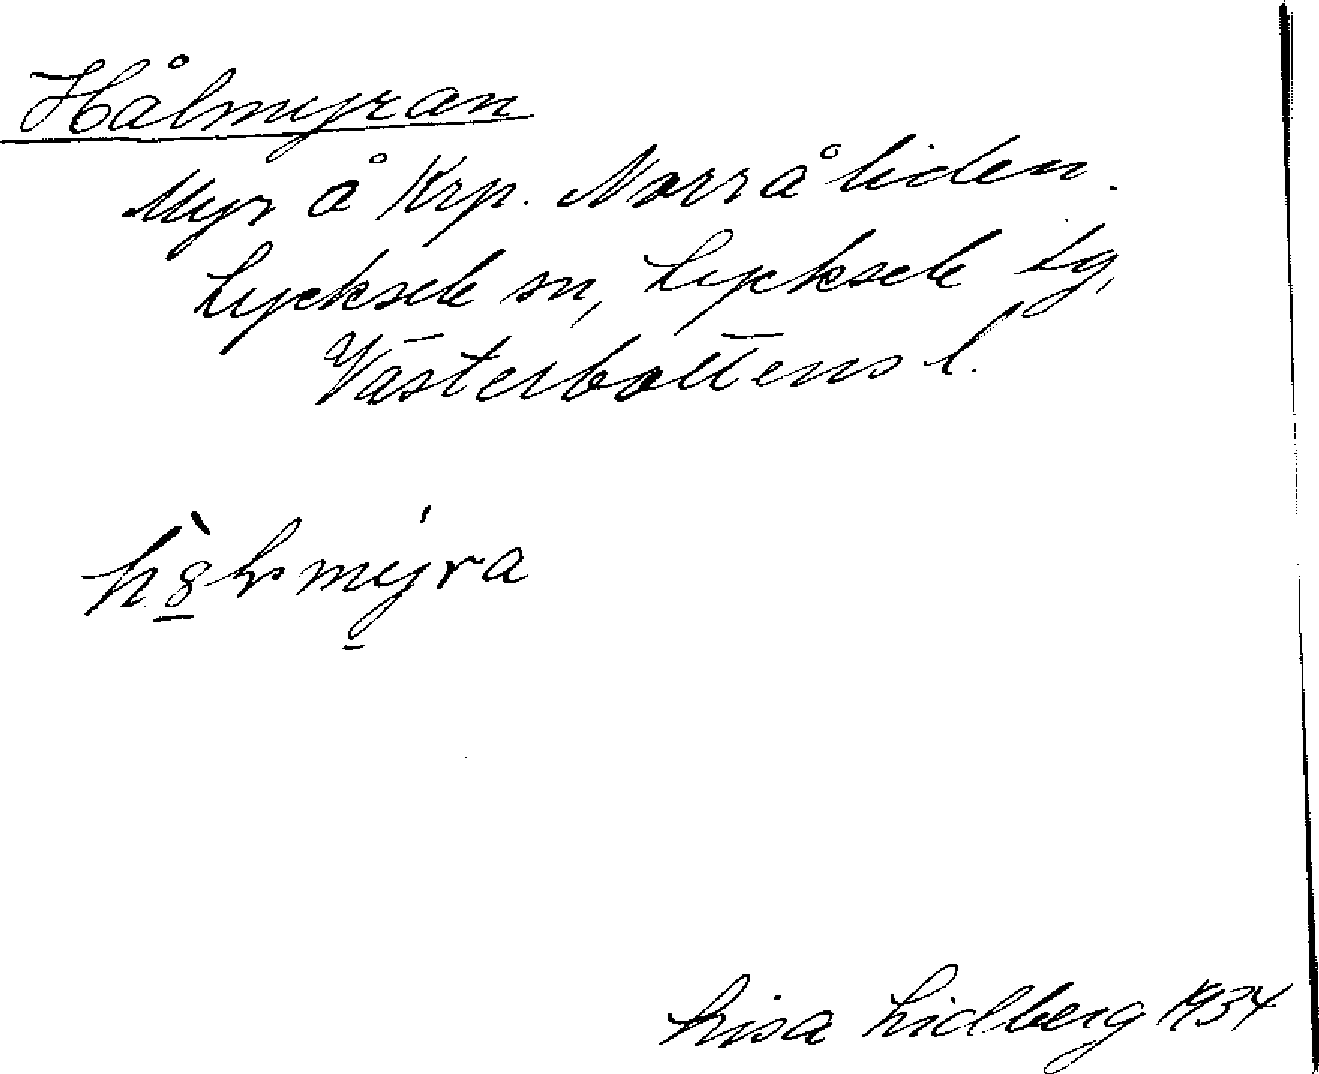 Hålmyran
Myr å Krp. Norråliden.
Lycksele sn, Lycksele lg,
Västerbottens l.
Lisa Lidberg 1934